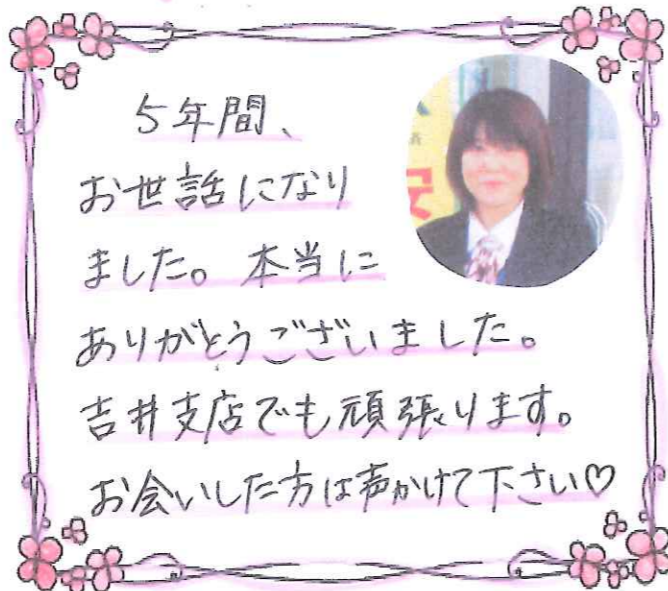 5年間、
お世話になり
ました。本当に
ありがとうございました。
吉井支店でも頑張ります。
お会いした方は声かけて下さい♡